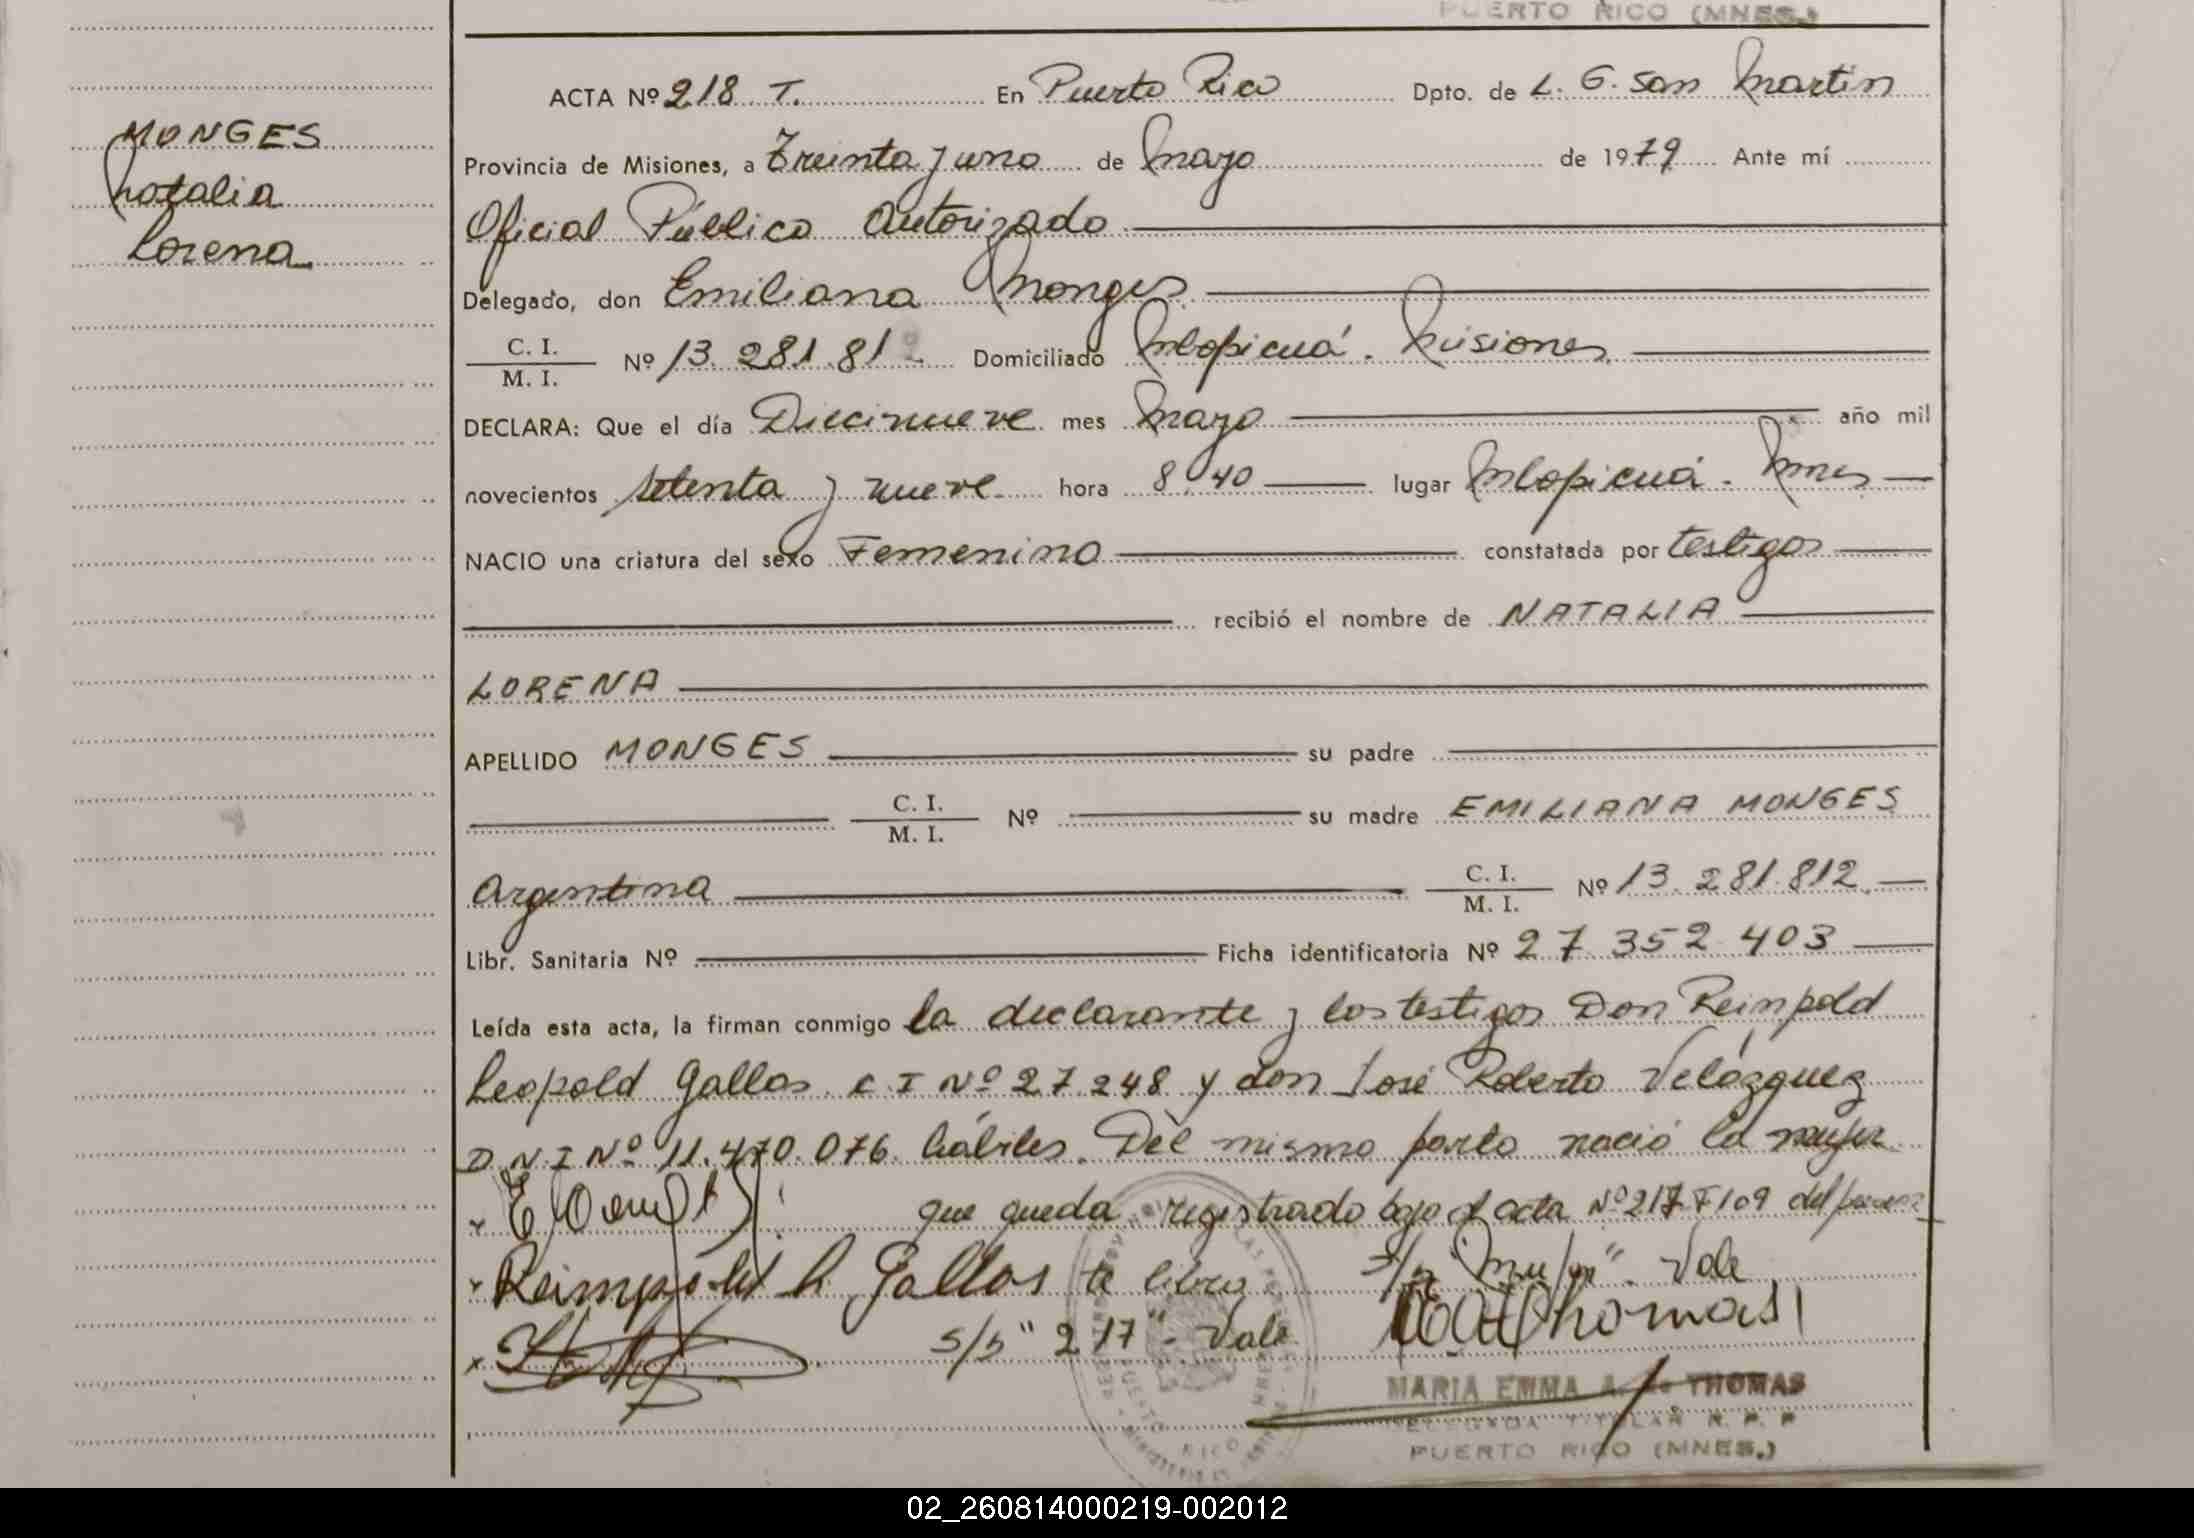 PUERTO RICO (MNES.)
MONGES
Natalia
Lorena
ACTA Nº 218 T. En Puerto Rico Dpto. de L. G. San Martín
Provincia de Misiones, a Treinta y uno de Mayo de 1979 Ante mí
Oficial Público Autorizado
Delegado, don Emiliana Monges
C. I.
M. I. Nº 13.281.812 Domiciliado Mbopicuá. Misiones
DECLARA: Que el día Diecinueve mes Mayo año mil
novecientos setenta y nueve hora 8,40 lugar Mbopicuá. Mnes
NACIO una criatura del sexo Femenino constatada por testigos
recibió el nombre de NATALIA
LORENA
APELLIDO MONGES su padre
C. I.
M. I. Nº su madre EMILIANA MONGES
Argentina C. I.
M. I. Nº 13.281.812
Libr. Sanitaria Nº Ficha identificatoria Nº 27.352.403
Leída esta acta, la firman conmigo la declarante y los testigos Don Reimpold
Leopold Gallas C.I Nº 27.248 y don José Roberto Velázquez
D.N.I Nº 11.470.076. hábiles. Del mismo parto nació la mujer
que queda registrado bajo el acta Nº 217 Fº 109 del presen
te libro S/r "Mujer". Vale
Reimpold L. Gallas
S/b "217" - Vale
MARIA EMMA A. de THOMAS
DELEGADA TITULAR R. P. P
PUERTO RICO (MNES.)
02_260814000219-002012